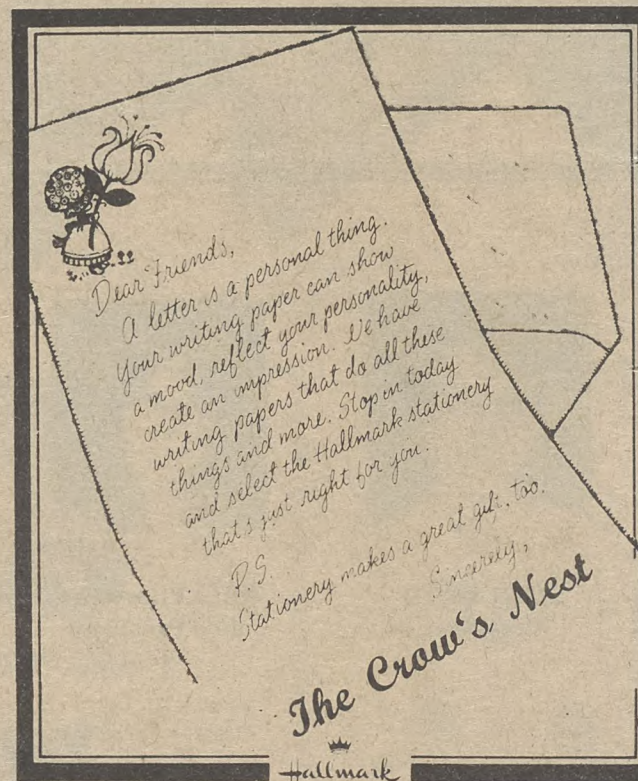 Dear Friends,
A letter is a personal thing.
Your writing paper can show
a mood, reflect your personality,
create an impression. We have
writing papers that do all these
things and more. Stop in today
and select the Hallmark stationery
that's just right for you.
P.S.
Stationery makes a great gift, too.
Sincerely,
The Crow's Nest
Hallmark